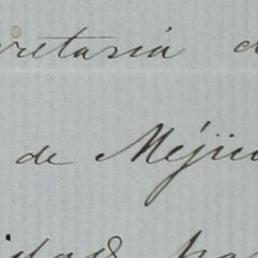 cretaria d
de Méjico
idad pa